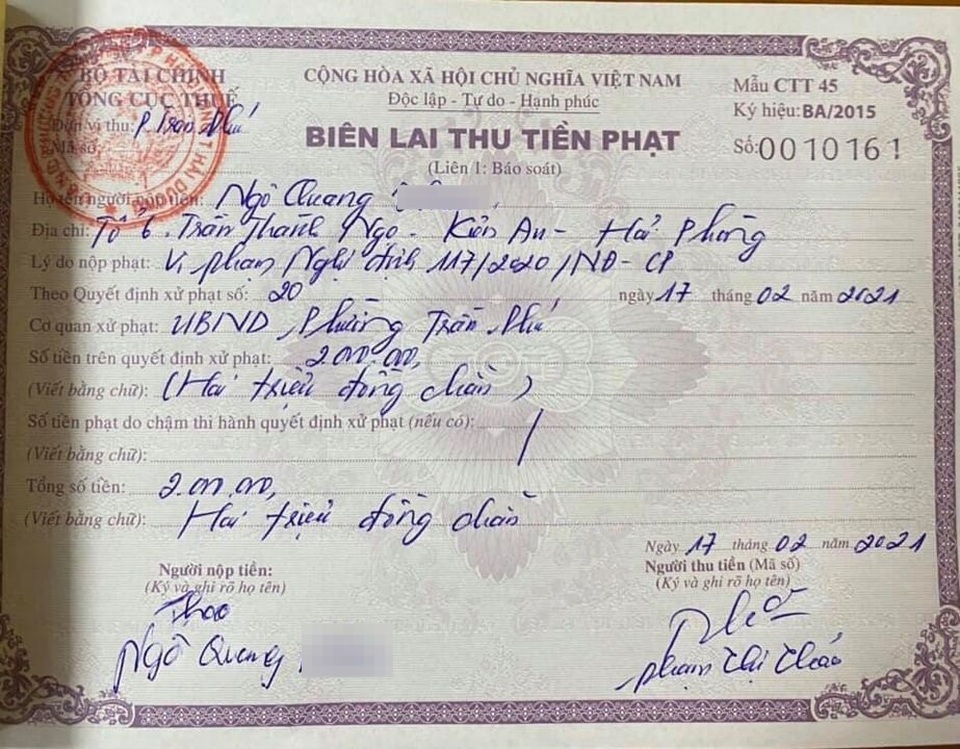 BỘ TÀI CHÍNH
TỔNG CỤC THUẾ
Đơn vị thu: P. Trần Phú
Mã số:
CỘNG HÒA XÃ HỘI CHỦ NGHĨA VIỆT NAM
Độc lập - Tự do - Hạnh phúc
BIÊN LAI THU TIỀN PHẠT
(Liên 1: Báo soát)
Mẫu CTT 45
Ký hiệu: BA/2015
Số: 0010161
Họ tên người nộp tiền: Ngô Quang
Địa chỉ: Tổ 6. Trần Thành Ngọ - Kiến An - Hải Phòng
Lý do nộp phạt: Vi phạm Nghị định 117/2020/NĐ-CP
Theo Quyết định xử phạt số: 20 ngày 17 tháng 02 năm 2021
Cơ quan xử phạt: UBND Phường Trần Phú
Số tiền trên quyết định xử phạt: 2.000.000,
(Viết bằng chữ): (Hai triệu đồng chẵn)
Số tiền phạt do chậm thi hành quyết định xử phạt (nếu có): /
(Viết bằng chữ):
Tổng số tiền: 2.000.000,
(Viết bằng chữ): Hai triệu đồng chẵn
Ngày 17 tháng 02 năm 2021
Người nộp tiền:
(Ký và ghi rõ họ tên)
Ngô Quang
Người thu tiền (Mã số)
(Ký và ghi rõ họ tên)
Phạm Thị Thảo